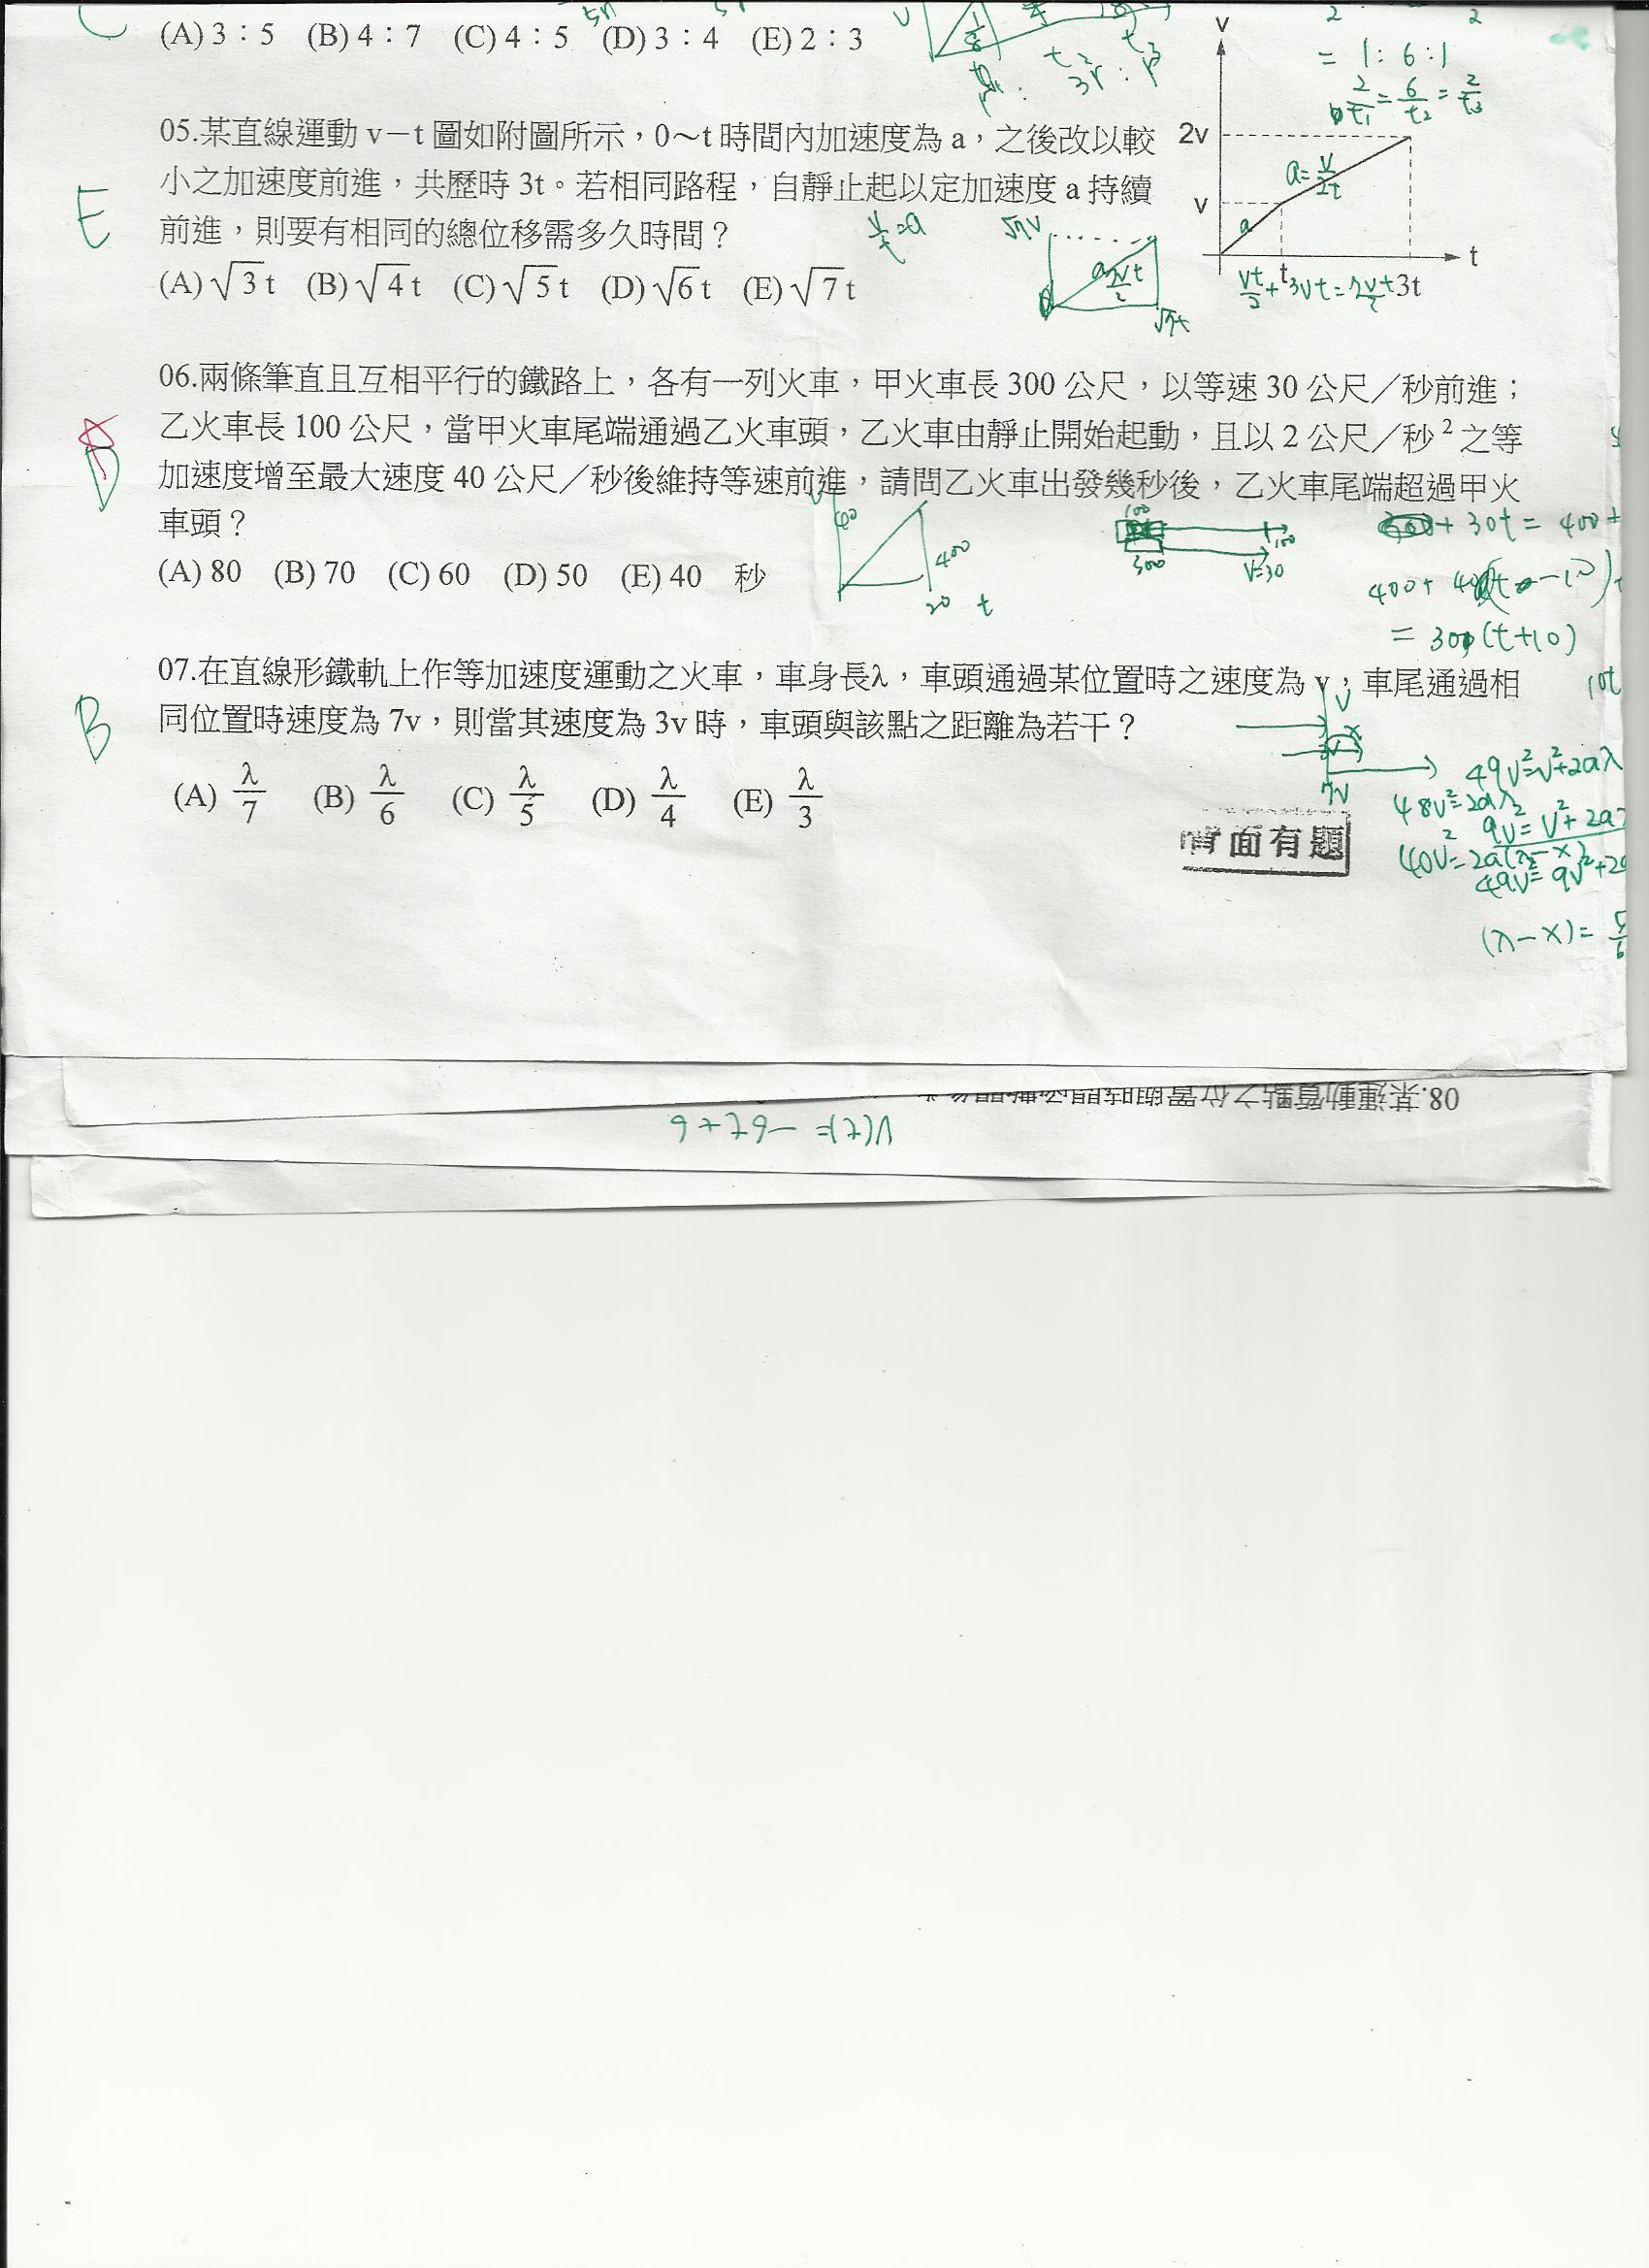 (A) 3：5 (B) 4：7 (C) 4：5 (D) 3：4 (E) 2：3
= 1 : 6 : 1
05.某直線運動 v－t 圖如附圖所示，0～t 時間內加速度為 a，之後改以較
小之加速度前進，共歷時 3t。若相同路程，自靜止起以定加速度 a 持續
前進，則要有相同的總位移需多久時間？
(A) √3 t (B) √4 t (C) √5 t (D) √6 t (E) √7 t
E
v
2v
v
t
t
3t
a
a=v/2t
v/t=a
√7v
√7t
06.兩條筆直且互相平行的鐵路上，各有一列火車，甲火車長 300 公尺，以等速 30 公尺／秒前進；
乙火車長 100 公尺，當甲火車尾端通過乙火車頭，乙火車由靜止開始起動，且以 2 公尺／秒² 之等
加速度增至最大速度 40 公尺／秒後維持等速前進，請問乙火車出發幾秒後，乙火車尾端超過甲火
車頭？
(A) 80 (B) 70 (C) 60 (D) 50 (E) 40 秒
D
40
400
20 t
100
300
V=30
100
+ 30t = 400 +
= 300(t+10)
10t
07.在直線形鐵軌上作等加速度運動之火車，車身長λ，車頭通過某位置時之速度為 v，車尾通過相
同位置時速度為 7v，則當其速度為 3v 時，車頭與該點之距離為若干？
(A) λ/7 (B) λ/6 (C) λ/5 (D) λ/4 (E) λ/3
B
V
x
7V
49v²=v²+2aλ
48v²=2aλ
9v²=v²+2a
40v²=2a(λ-x)
49v²=9v²+2a
(λ-x)= 5/6
背面有題
08.某運動質點之位置與時間函數關係
V(t)= -6t+6